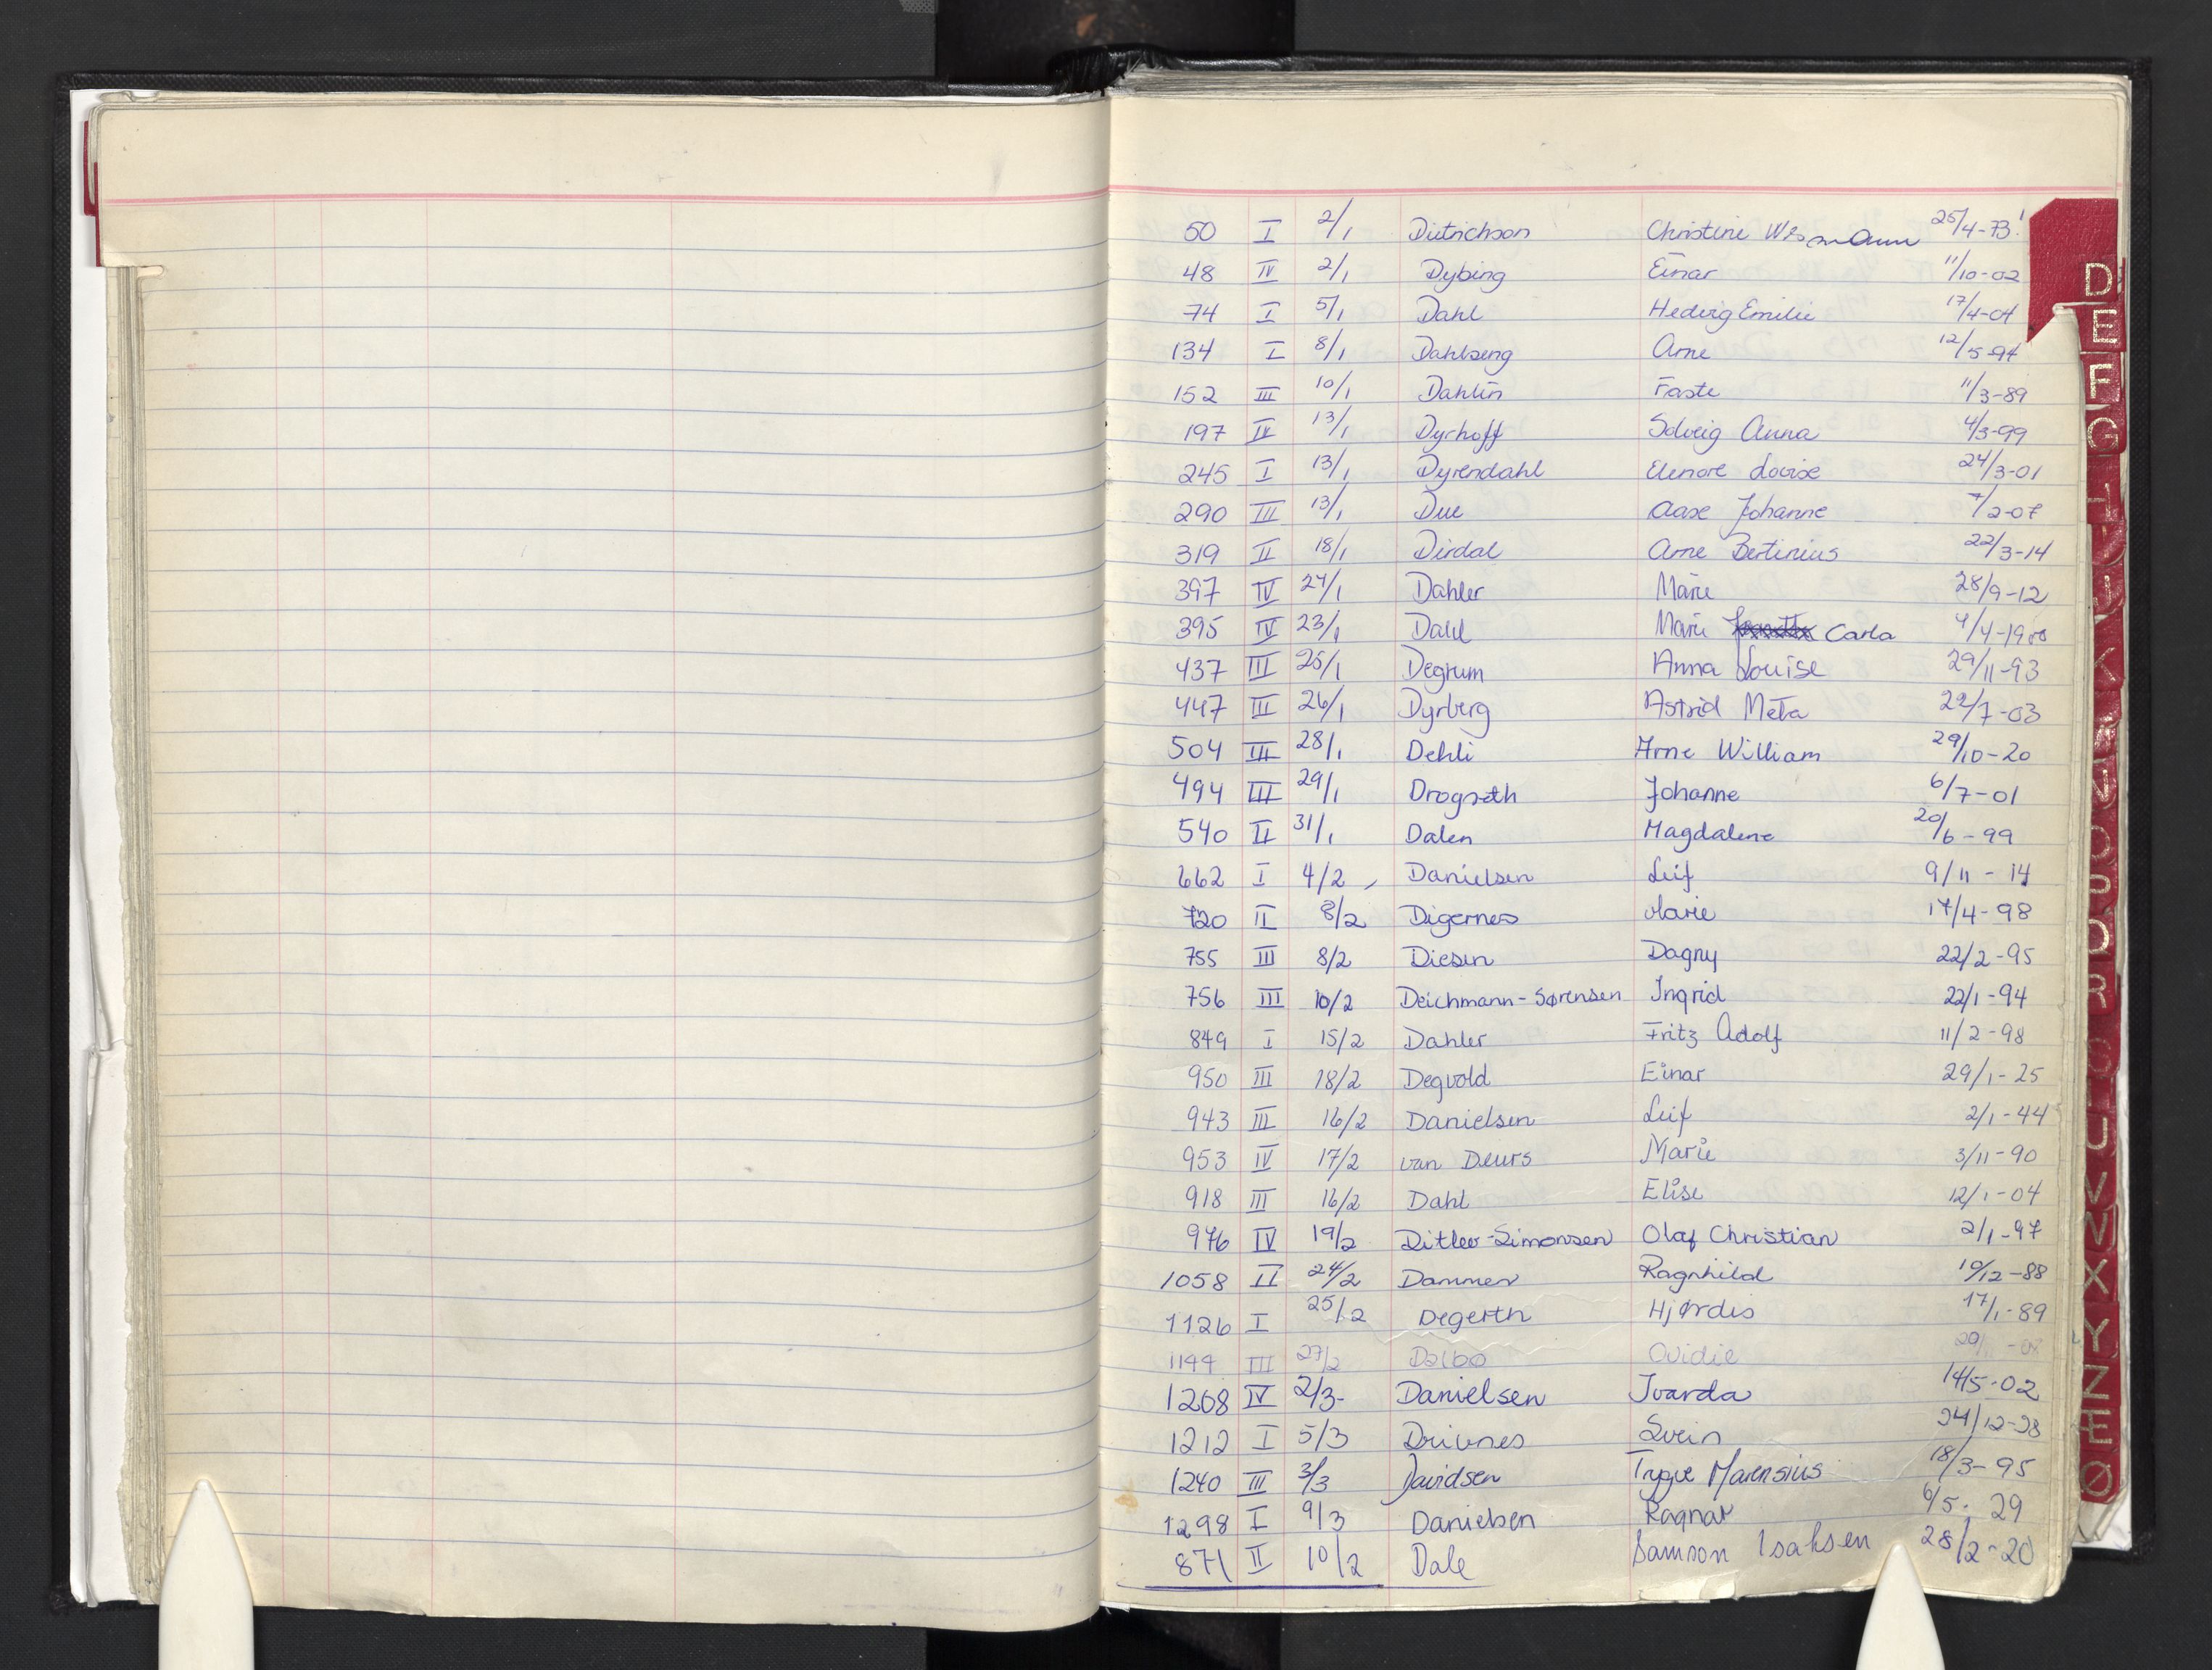 50 I 2/1 Ditrichson Christine Wesmann 25/4-73!
48 IV 2/1 Dybing Einar 11/10-02
74 I 5/1 Dahl Hedvig Emilie 17/4-04
134 I 8/1 Dahlseng Arne 12/5-94
152 III 10/1 Dahlin Faste 11/3-89
197 IV 13/1 Dyrhoff Solveig Anna 4/3-99
245 I 13/1 Dyrendahl Elenore Lovise 24/3-01
290 III 13/1 Due Aase Johanne 7/2-07
319 II 18/1 Dirdal Arne Bertinius 22/3-14
397 IV 24/1 Dahler Marie 28/9-12
395 IV 23/1 Dahl Marie Carla 4/4-1900
437 III 25/1 Degrum Anna Louise 29/11-93
447 III 26/1 Dyrberg Astrid Meta 22/7-03
504 III 28/1 Dehli Arne William 29/10-20
494 III 29/1 Drogseth Johanne 6/7-01
540 II 31/1 Dalen Magdalene 20/6-99
662 I 4/2 Danielsen Leif 9/11-14
720 II 8/2 Digernes Marie 17/4-98
755 III 8/2 Diesen Dagny 22/2-95
756 III 10/2 Deichmann-Sørensen Ingrid 22/1-94
849 I 15/2 Dahler Fritz Adolf 11/2-98
950 III 18/2 Degvold Einar 29/1-25
943 III 16/2 Danielsen Leif 2/1-44
953 IV 17/2 van Deurs Marie 3/11-90
918 III 16/2 Dahl Elise 12/1-04
976 IV 19/2 Ditlev-Simonsen Olaf Christian 2/1-97
1058 II 24/2 Dammen Ragnhild 10/12-88
1126 I 25/2 Degerth Hjørdis 17/1-89
1144 III 27/2 Dalbo Ovidie
1268 IV 2/3- Danielsen Ivarda 14/5-02
1212 I 5/3 Drivnes Svein 24/12-28
1240 III 3/3 Davidsen Trygve Marensius 18/3-95
1298 I 9/3 Danielsen Ragnar 6/5-29
871 II 10/2 Dale Samson Isaksen 28/2-20
D
E
F
G
H
I
J
K
N
O
P
R
S
U
V
W
X
Y
Z
Æ
Ø